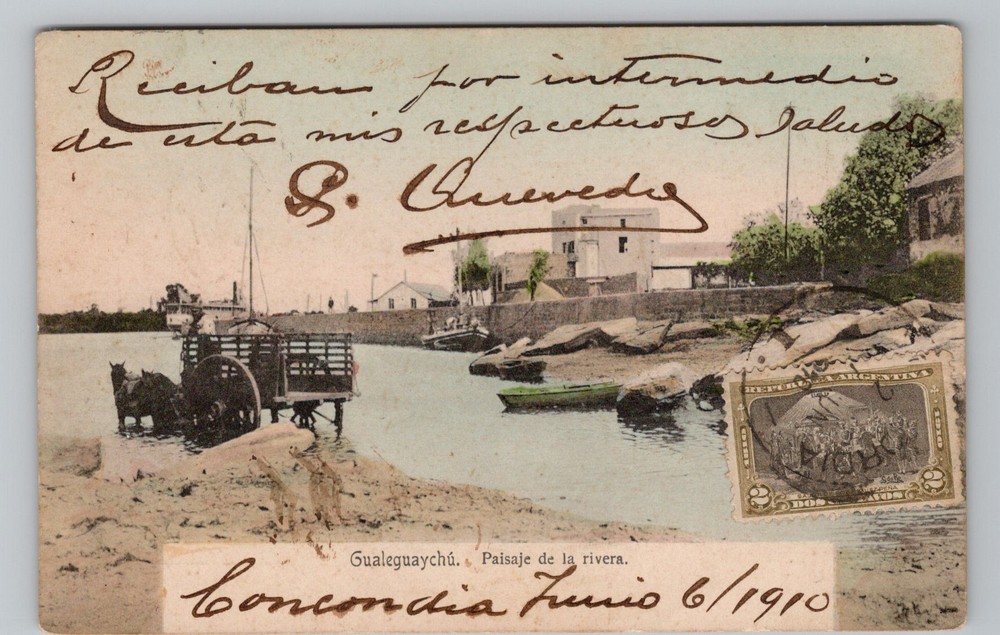 Reciban por intermedio
de esta mis respectuosos saludos
Gualeguaychú. Paisaje de la rivera.
Concordia Junio 6/1910
REPUBLICA ARGENTINA
1810
1910
2 DOS CENTAVOS 2